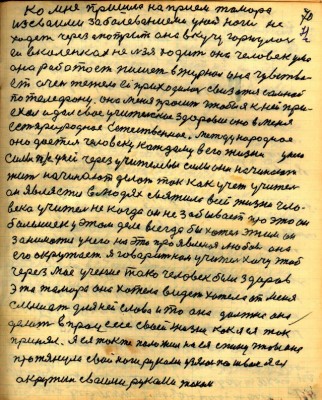 Ко мне пришла на прием тамара
из своими заболеваниями у ней ноги не
ходят через
в коленках не нея ходит она человек уж
она работает пишет в журнал она чувствы
ет очен тежело ей приходилос связатся самой
по телефону. она меня просит чтобы я к ней при
ехал и дал свое учительское здоровье оно в меня
сетяприродное Естественное. Международное
оно дается человеку каждому в его жизни
силы придут через учителевы силы они начинают
жит начинают делат так как учет учител
он является в людях святило всей жизне чело
века учител не когда он не забывает про это он
болышем у этом деле всегда бы хотел этим он
занимати у него на это проявился любов она
его окружает я говарит как учител хочу чтоб
через мое учение так человек был здаров
эта тамара она хотела видет хотела от меня
слышат для ней слова и то она должна она
делат в процесе своей жизни как я ея так
принял. Я ея так же положил на ея спину чтобы она
протянула свои ноги руками узял
окружил своими руками таком